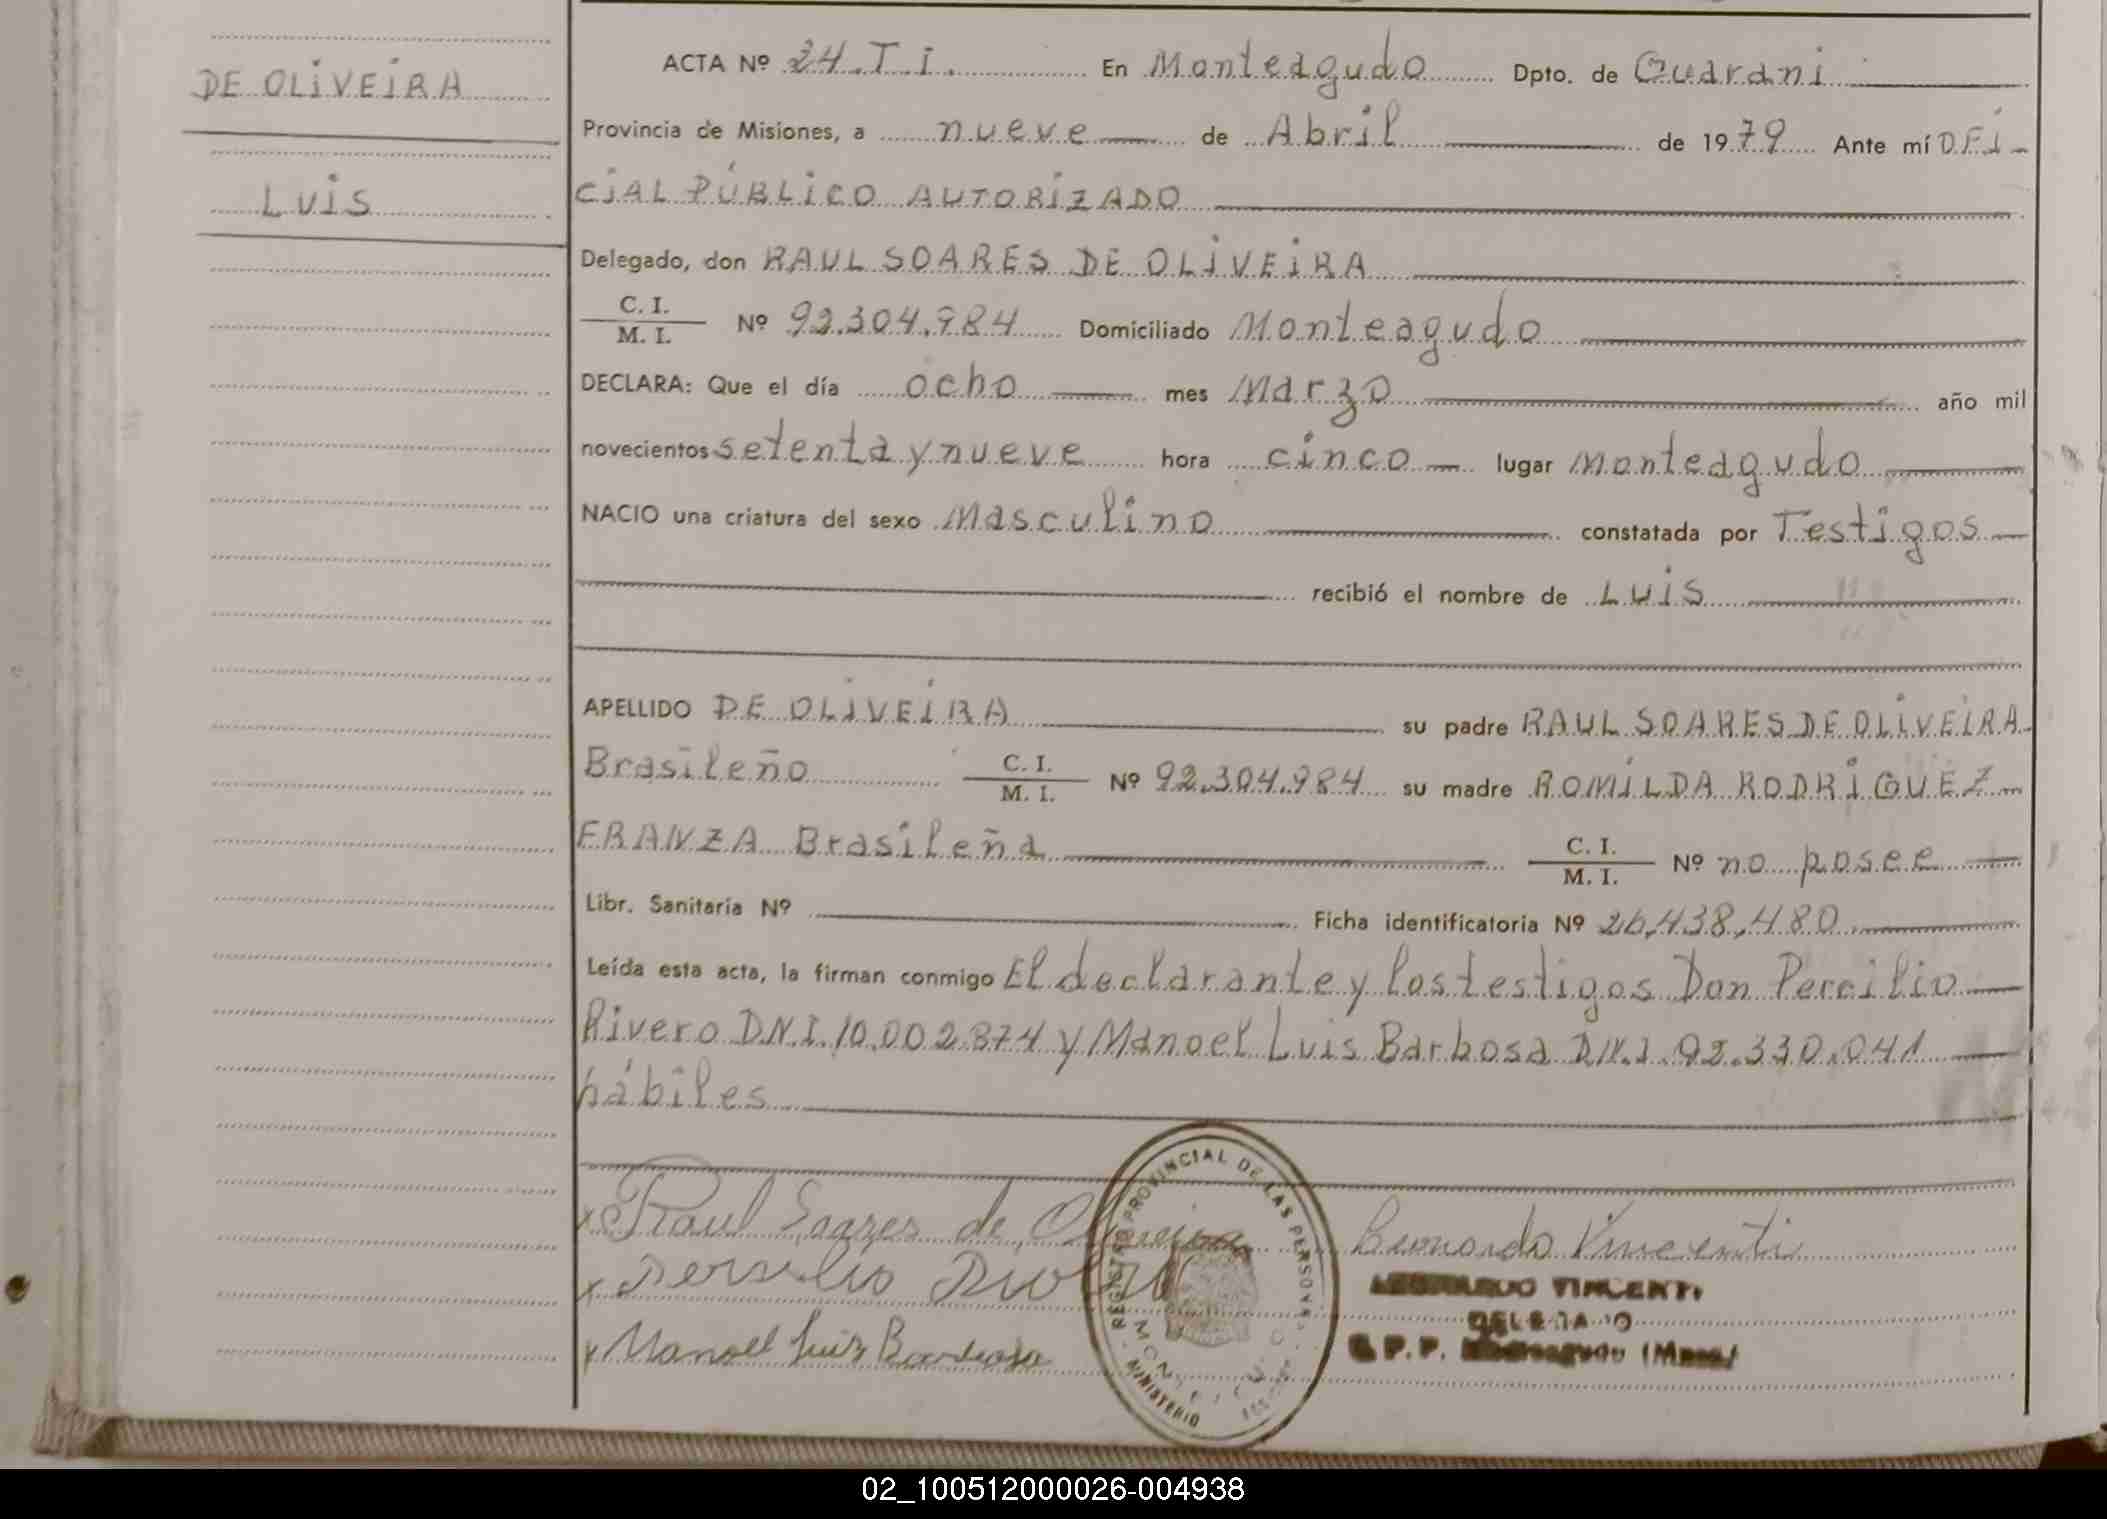 DE OLIVEIRA
LUIS
ACTA Nº 24. T I. En Monteagudo Dpto. de Guarani
Provincia de Misiones, a nueve de Abril de 1979 Ante mí OFI-
CIAL PÚBLICO AUTORIZADO
Delegado, don RAUL SOARES DE OLIVEIRA
C. I.
M. I. Nº 92.304.984 Domiciliado Monteagudo
DECLARA: Que el día ocho mes Marzo año mil
novecientos setenta y nueve hora cinco lugar Monteagudo
NACIO una criatura del sexo Masculino constatada por Testigos
recibió el nombre de LUIS
APELLIDO DE OLIVEIRA su padre RAUL SOARES DE OLIVEIRA
Brasileño C. I. M. I. Nº 92.304.984 su madre ROMILDA RODRIGUEZ
FRANZA Brasileña C. I. M. I. Nº no posee
Libr. Sanitaria Nº Ficha identificatoria Nº 26.438.480
Leída esta acta, la firman conmigo El declarante y los testigos Don Percilio
Rivero D.N.I. 10.002.874 y Manoel Luis Barbosa D.N.I. 92.330.041
hábiles
Raul Soares de Oliveira
Bernardo Vincenti
Manoel Luis Barbosa
VINCENTI
DELEGADO
P.P.
REGISTRO PROVINCIAL DE LAS PERSONAS
MINISTERIO
02_100512000026-004938